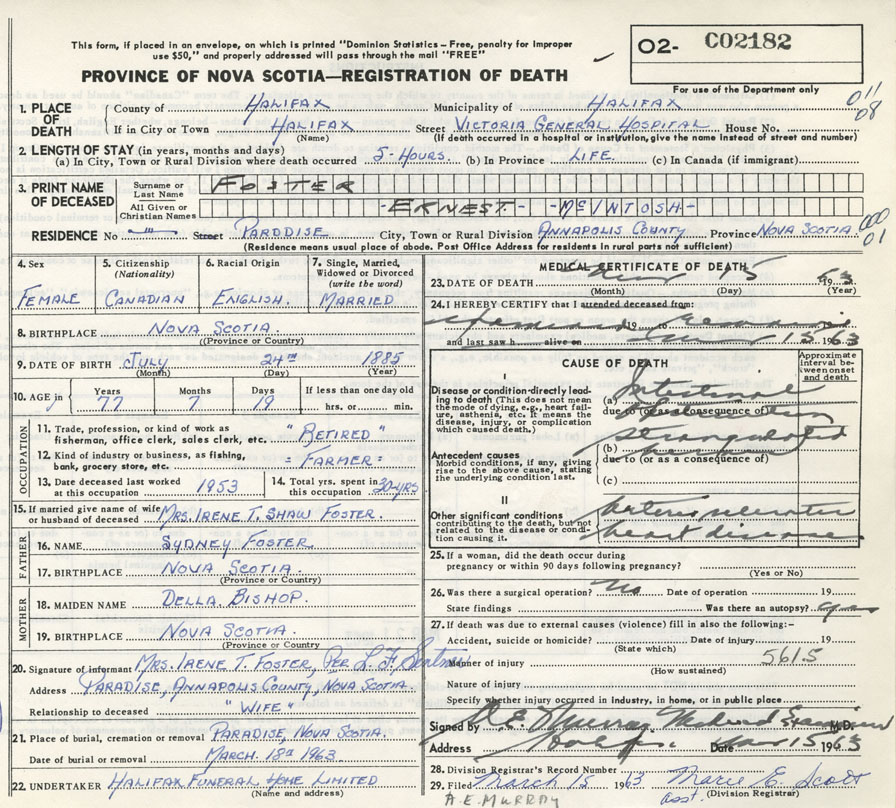 This form, if placed in an envelope, on which is printed "Dominion Statistics – Free, penalty for improper
use $50," and properly addressed will pass through the mail "FREE"
PROVINCE OF NOVA SCOTIA—REGISTRATION OF DEATH
O2- C02182
For use of the Department only
011
08
1. PLACE OF DEATH
County of HALIFAX Municipality of HALIFAX
If in City or Town HALIFAX Street VICTORIA GENERAL HOSPITAL House No.
(Name) (If death occurred in a hospital or institution, give the name instead of street and number)
2. LENGTH OF STAY (in years, months and days)
(a) In City, Town or Rural Division where death occurred 5-HOURS. (b) In Province LIFE. (c) In Canada (if immigrant)
3. PRINT NAME OF DECEASED
Surname or Last Name FOSTER
All Given or Christian Names -ERNEST- -MCINTOSH-
000
01
RESIDENCE No Street PARADISE City, Town or Rural Division ANNAPOLIS COUNTY Province NOVA SCOTIA
(Residence means usual place of abode. Post Office Address for residents in rural parts not sufficient)
4. Sex FEMALE
5. Citizenship (Nationality) CANADIAN
6. Racial Origin ENGLISH.
7. Single, Married, Widowed or Divorced (write the word) MARRIED
8. BIRTHPLACE NOVA SCOTIA
(Province or Country)
9. DATE OF BIRTH JULY 24TH 1885
(Month) (Day) (Year)
10. AGE in Years 77 Months 7 Days 19 If less than one day old hrs. or min.
OCCUPATION
11. Trade, profession, or kind of work as fisherman, office clerk, sales clerk, etc. "RETIRED"
12. Kind of industry or business, as fishing, bank, grocery store, etc. =FARMER=
13. Date deceased last worked at this occupation 1953
14. Total yrs. spent in this occupation 30-YRS
15. If married give name of wife or husband of deceased MRS. IRENE T. SHAW FOSTER.
FATHER
16. NAME SYDNEY FOSTER.
17. BIRTHPLACE NOVA SCOTIA.
(Province or Country)
MOTHER
18. MAIDEN NAME DELLA. BISHOP.
19. BIRTHPLACE NOVA SCOTIA.
(Province or Country
20. Signature of informant MRS. IRENE T. FOSTER, PER L. F.
Address PARADISE, ANNAPOLIS COUNTY, NOVA SCOTIA.
Relationship to deceased "WIFE"
21. Place of burial, cremation or removal PARADISE, NOVA SCOTIA.
Date of burial or removal MARCH. 18 1963.
22. UNDERTAKER HALIFAX FUNERAL HOME LIMITED
(Name and address)
MEDICAL CERTIFICATE OF DEATH
23. DATE OF DEATH 15 63
(Month) (Day) (Year)
24. I HEREBY CERTIFY that I attended deceased from:
19 to 19
and last saw h alive on 15 1963
CAUSE OF DEATH
Approximate interval between onset and death
I
Disease or condition directly leading to death (This does not mean the mode of dying, e.g., heart failure, asthenia, etc. It means the disease, injury, or complication which caused death.)
(a) intestinal
due to (or as a consequence of)
strangulated
Antecedent causes
Morbid conditions, if any, giving rise to the above cause, stating the underlying condition last.
(b)
due to (or as a consequence of)
(c)
II
Other significant conditions contributing to the death, but not related to the disease or condition causing it.
heart disease.
25. If a woman, did the death occur during
pregnancy or within 90 days following pregnancy?
(Yes or No)
26. Was there a surgical operation? no Date of operation 19
State findings Was there an autopsy? yes
27. If death was due to external causes (violence) fill in also the following:-
Accident, suicide or homicide? Date of injury 19
(State which)
Manner of injury 5615
(How sustained)
Nature of injury
Specify whether injury occurred in industry, in home, or in public place
Signed by A. E. Murray Medical Examiner M.D.
Address Date Mar 15 1963
28. Division Registrar's Record Number
29. Filed March 15 1963 Marie E. Scott
A. E. MURRAY asst. (Division Registrar)